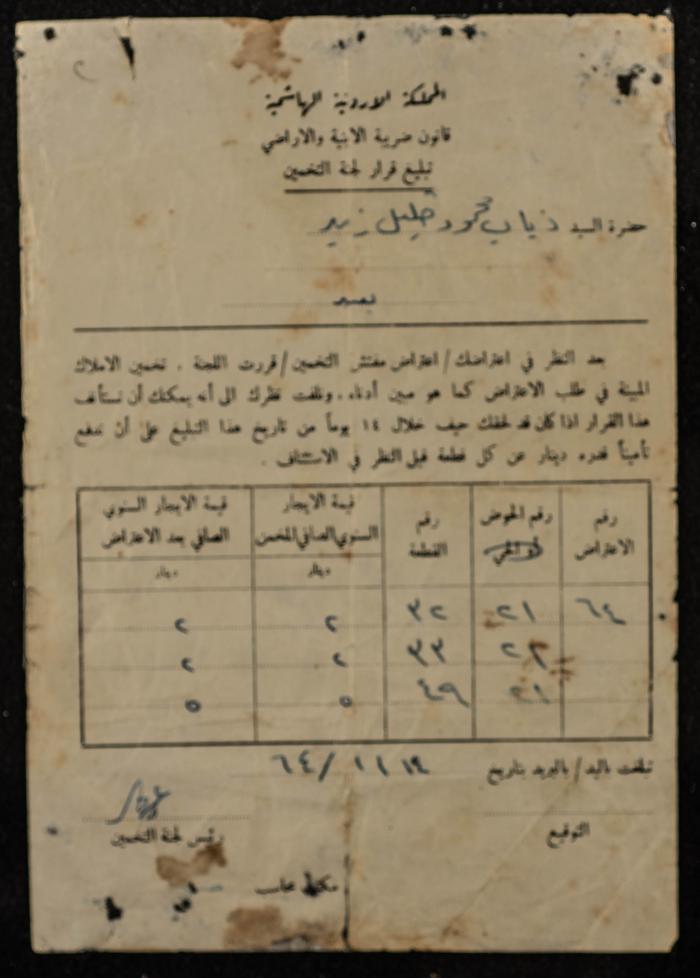 المملكة الاردنية الهاشمية
قانون ضريبة الابنية والاراضي
تبليغ قرار لجنة التخمين
حضرة السيد ذياب محمود خليل زيد
بعد النظر في اعتراضك / اعتراض مفتش التخمين / قررت اللجنة . تخمين الاملاك
المبينة في طلب الاعتراض كما هو مبين أدناه . ونلفت نظرك الى أنه يمكنك أن تستأنف
هذا القرار اذا كان قد لحقك حيف خلال ١٤ يوماً من تاريخ هذا التبليغ على أن تدفع
تأميناً قدره دينار عن كل قطعة قبل النظر في الاستئناف .
رقم الاعتراض رقم الحوض أو الحي رقم القطعة قيمة الايجار السنوي الصافي المخمن قيمة الايجار السنوي الصافي بعد الاعتراض
دينار دينار
٦٤ ٢١ ٣٢ ٢ ٢
٢٢ ٣٣ ٢ ٢
٢١ ٤٩ ٥ ٥
تبلغت باليد / بالبريد بتاريخ ١٤ ١١ / ٦٤
التوقيع رئيس لجنة التخمين